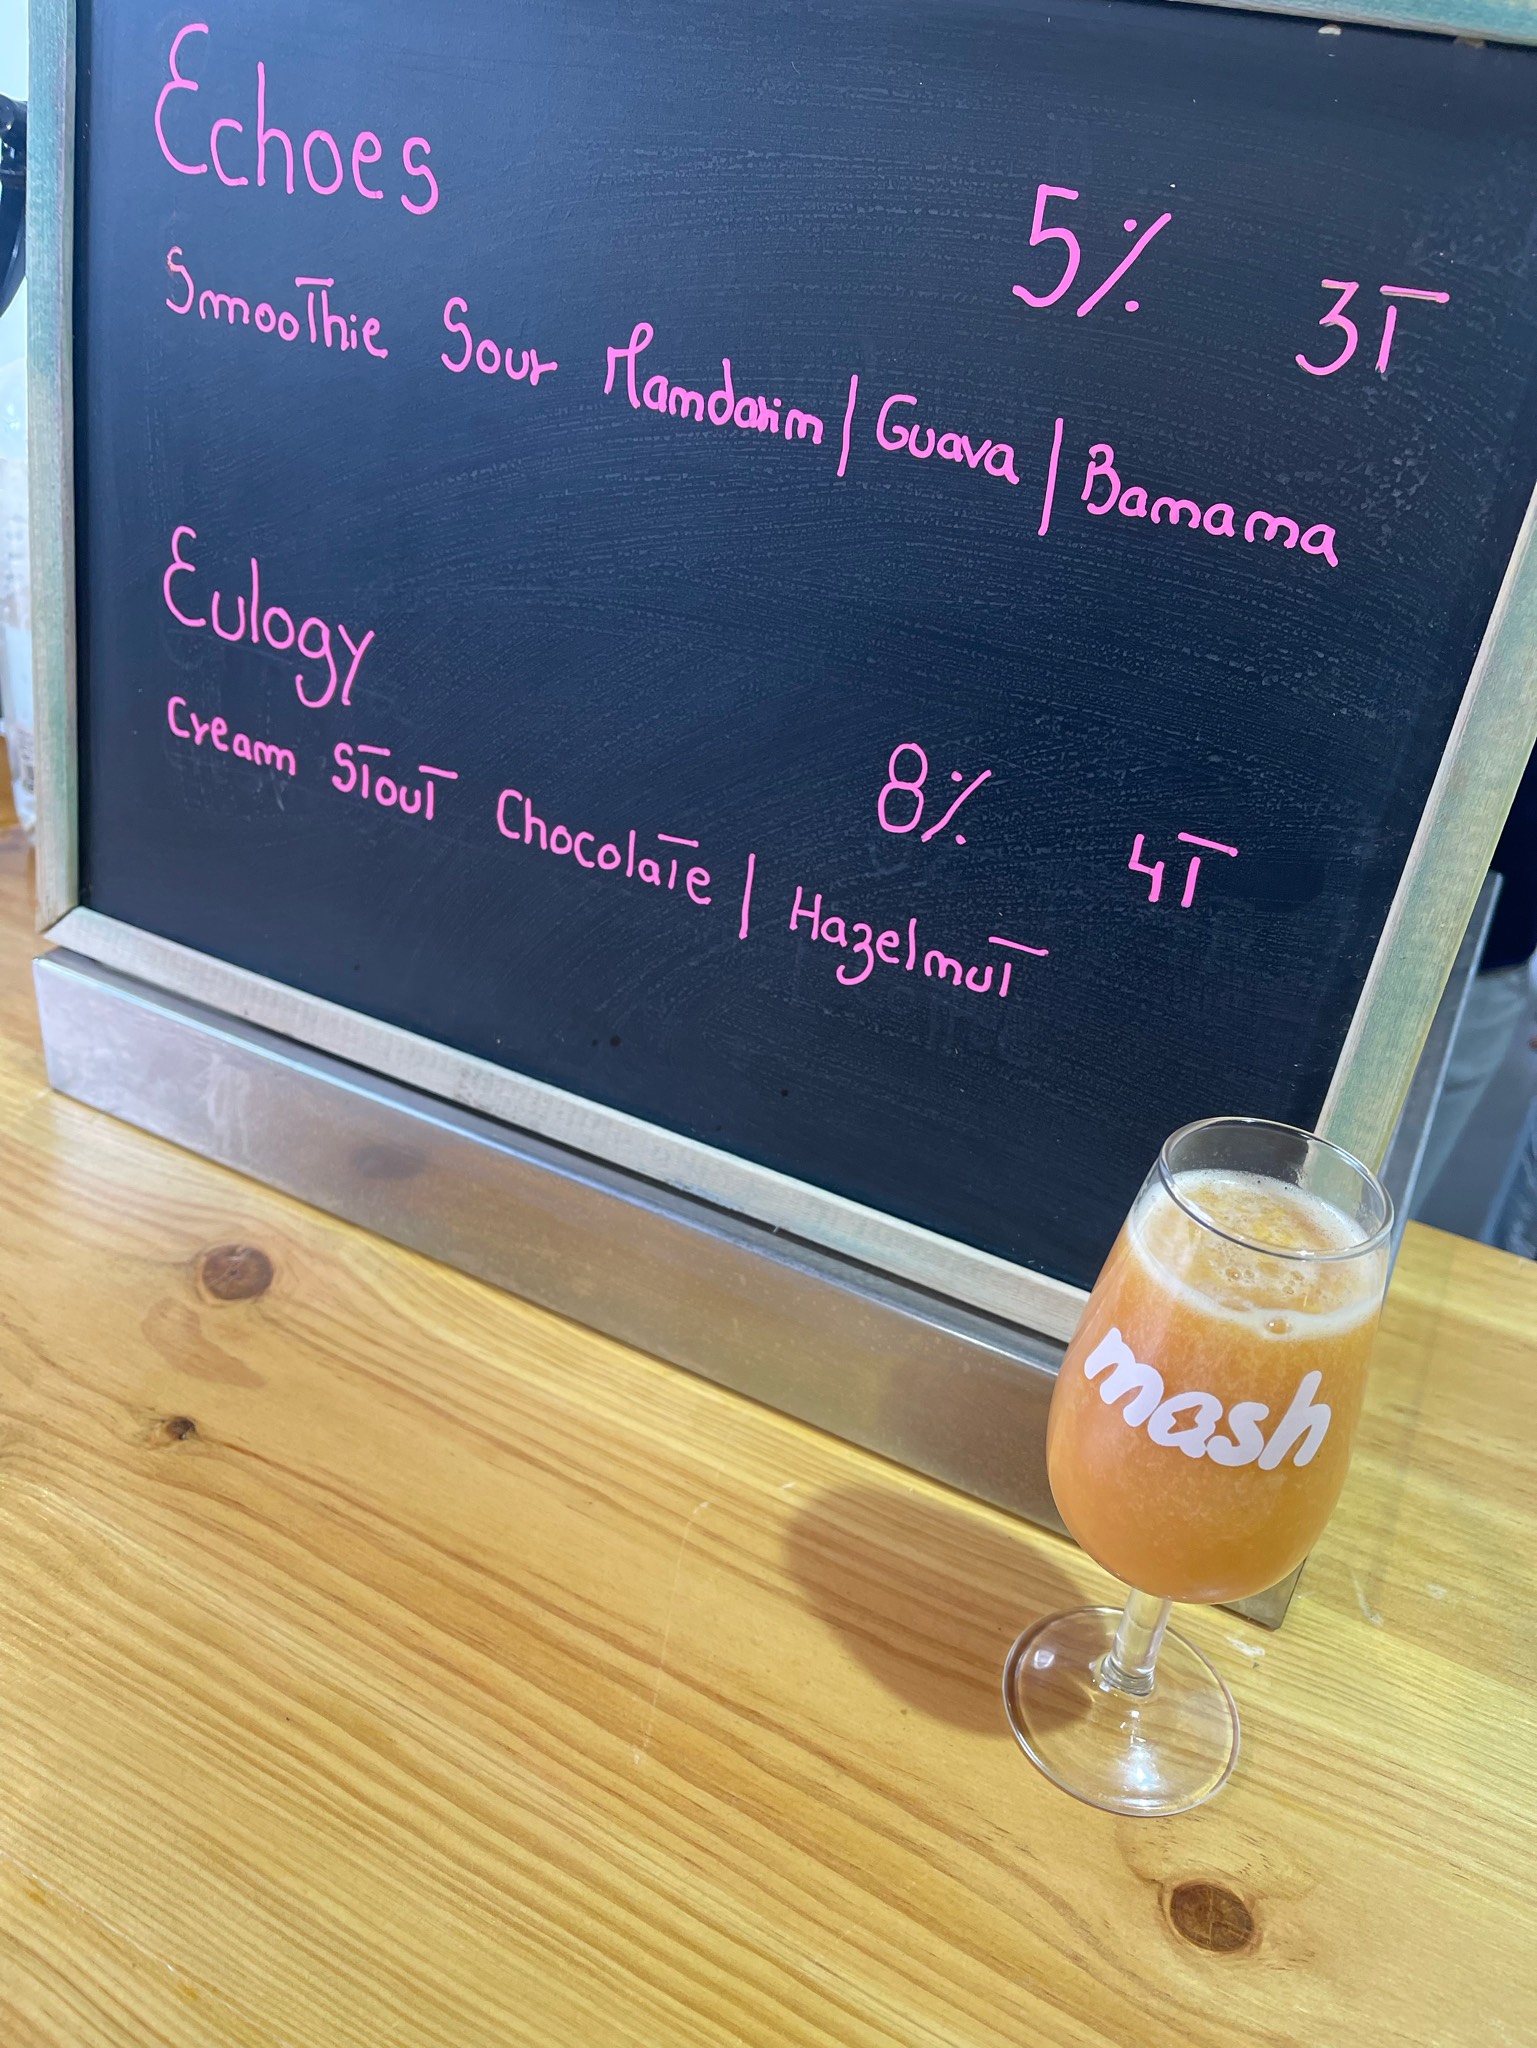 Echoes 5% 3T
Smoothie Sour Mandarin | Guava | Banana
Eulogy
Cream Stout Chocolate | Hazelnut 8% 4T
mash